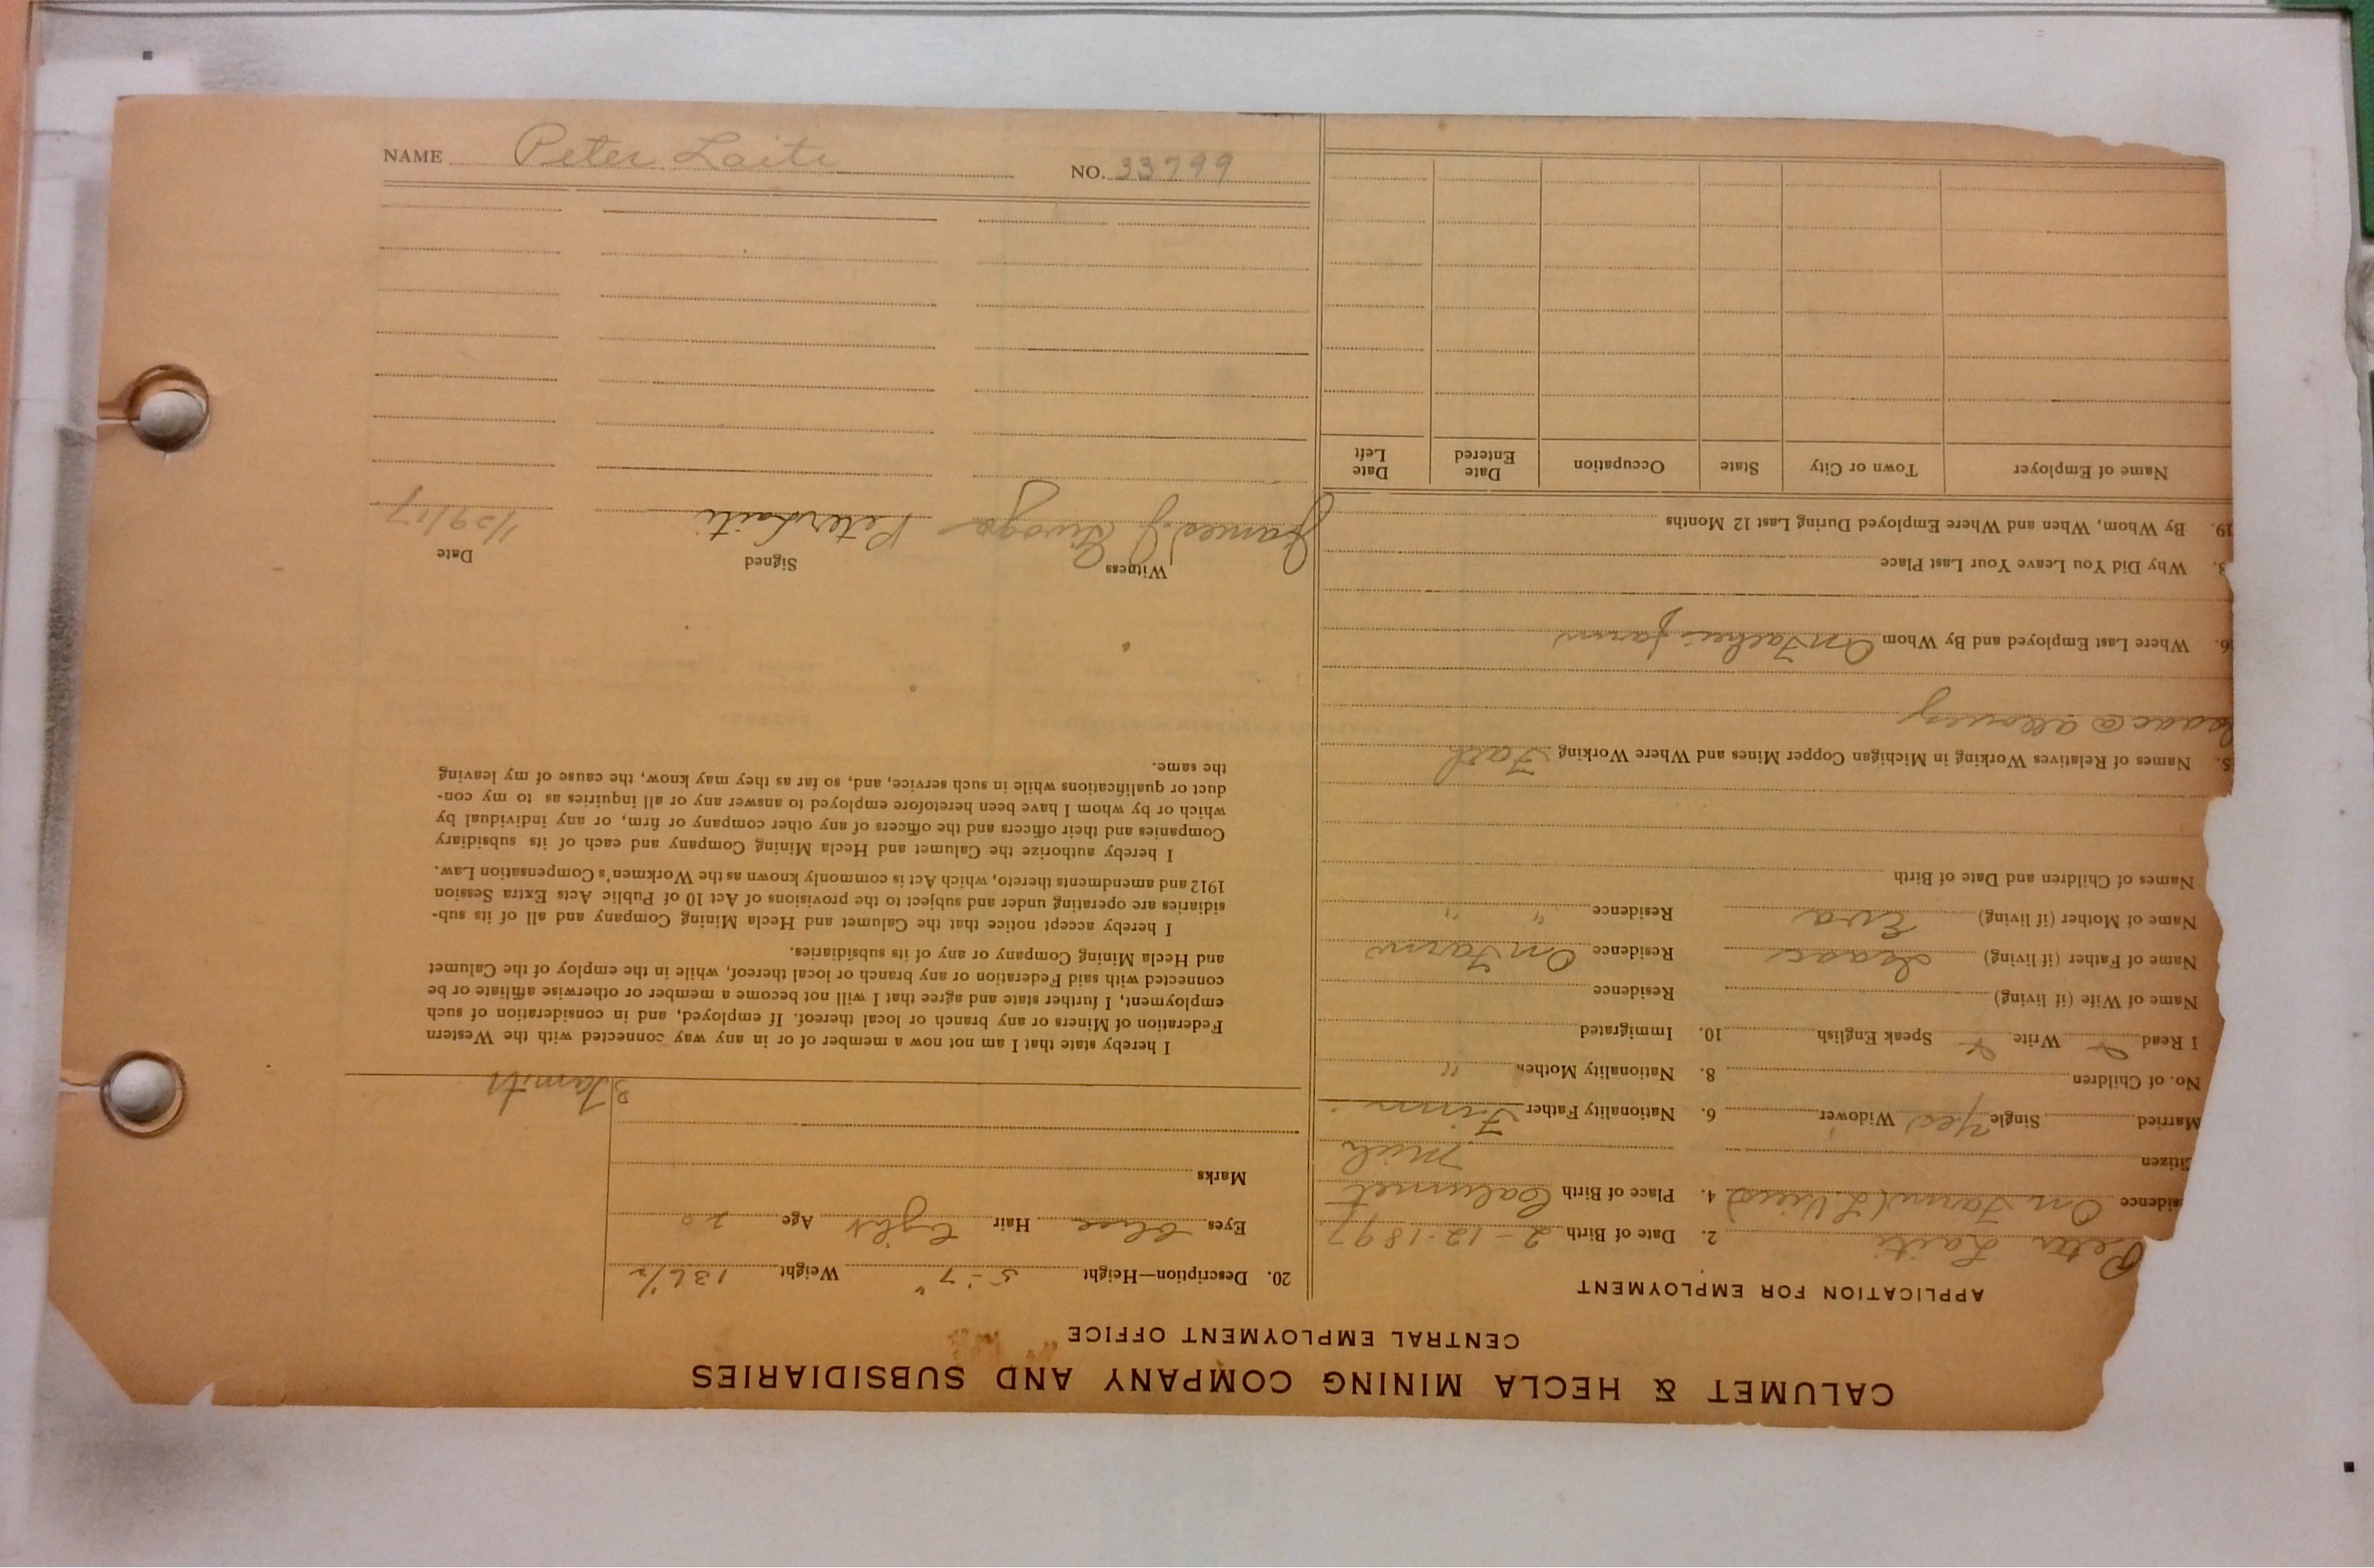 CALUMET & HECLA MINING COMPANY AND SUBSIDIARIES
CENTRAL EMPLOYMENT OFFICE
APPLICATION FOR EMPLOYMENT
Peter Laiti 2. Date of Birth 2-12-1897
sidence On Farm 4. Place of Birth Calumet
itizen Mich
Married Single Yes Widower 6. Nationality Father Finn
No. of Children 8. Nationality Mother "
I Read Write Speak English 10. Immigrated
Name of Wife (if living) Residence
Name of Father (if living) Isaac Residence On Farm
Name of Mother (if living) Eva Residence " "
Names of Children and Date of Birth
5. Names of Relatives Working in Michigan Copper Mines and Where Working Fath
Isaac @ allouez
6. Where Last Employed and By Whom On Father's farm
8. Why Did You Leave Your Last Place
19. By Whom, When and Where Employed During Last 12 Months
Name of Employer Town or City State Occupation Date Entered Date Left
20. Description—Height 5-7" Weight 136½
Eyes blue Hair light Age 20
Marks
I hereby state that I am not now a member of or in any way connected with the Western
Federation of Miners or any branch or local thereof. If employed, and in consideration of such
employment, I further state and agree that I will not become a member or otherwise affiliate or be
connected with said Federation or any branch or local thereof, while in the employ of the Calumet
and Hecla Mining Company or any of its subsidiaries.
I hereby accept notice that the Calumet and Hecla Mining Company and all of its sub-
sidiaries are operating under and subject to the provisions of Act 10 of Public Acts Extra Session
1912 and amendments thereto, which Act is commonly known as the Workmen's Compensation Law.
I hereby authorize the Calumet and Hecla Mining Company and each of its subsidiary
Companies and their officers and the officers of any other company or firm, or any individual by
which or by whom I have been heretofore employed to answer any or all inquiries as to my con-
duct or qualifications while in such service, and, so far as they may know, the cause of my leaving
the same.
Witness Signed Date
James J. Peter Laiti 1/29/17
NAME Peter Laiti NO. 33799